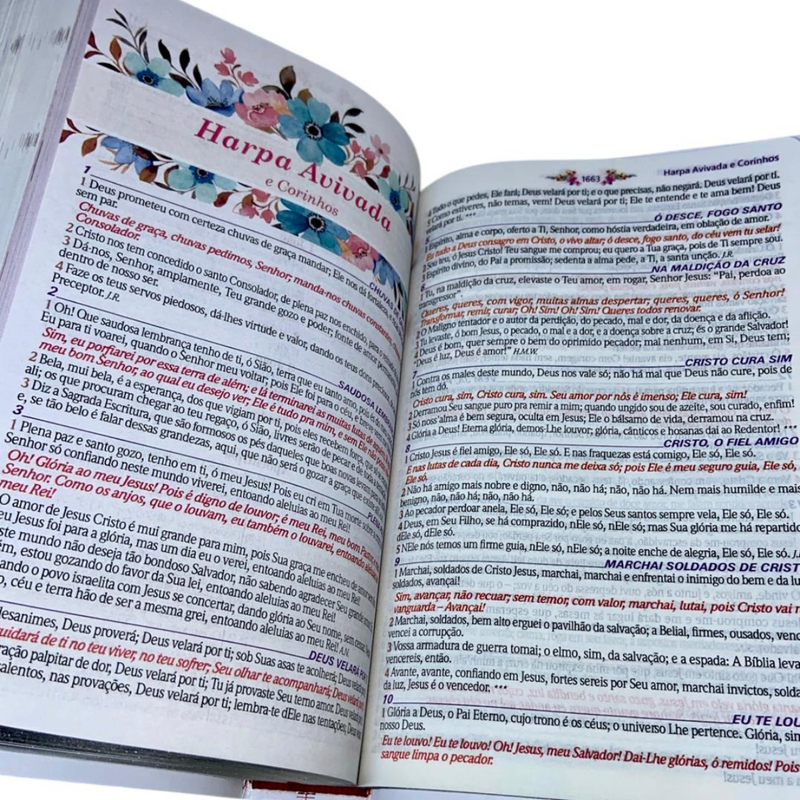 Harpa Avivada
e Corinhos
1
CHUVAS
1 Deus prometeu com certeza chuvas de graça mandar; Ele nos dá fortaleza,
sem par.
Chuvas de graça, chuvas pedimos, Senhor; manda-nos chuvas constantes,
Consolador.
2 Cristo nos tem concedido o santo Consolador, de plena paz nos
3 Dá-nos, Senhor, amplamente, Teu grande gozo e poder; fonte de amor
dentro de nosso ser.
4 Faze os teus servos piedosos, dá-lhes virtude e valor, dando os teus dons
Preceptor. J.R.
2
SAUDOSA
1 Oh! Que saudosa lembrança tenho de ti, ó Sião, terra que eu tanto amo, pois
Eu para ti voarei, quando o Senhor meu voltar; pois Ele foi para o céu, e
Sim, eu porfiarei por essa terra de além; e lá terminarei as muitas lutas de
meu bom Senhor, ao qual eu desejo ver; Ele é tudo pra mim, e sem Ele não
2 Bela, mui bela, é a esperança, dos que vigiam por ti, pois eles recebem força,
ali; os que procuram chegar ao teu regaço, ó Sião, livres serão de pecar e de
3 Diz a Sagrada Escritura, que são formosos os pés daqueles que boas novas
e, se tão belo é falar dessas grandezas, aqui, que não será o gozar a graça que
3
1 Plena paz e santo gozo, tenho em ti, ó meu Jesus! Pois eu cri em Tua morte
Senhor só confiando neste mundo viverei, entoando aleluias ao meu Rei!
Oh! Glória ao meu Jesus! Pois é digno de louvor; é meu Rei, meu bom
Senhor. Como os anjos, que o louvam, eu também o louvarei, entoando
meu Rei!
O amor de Jesus Cristo é mui grande para mim, pois Sua graça me encheu de amor
eu Jesus foi para a glória, mas um dia eu o verei, entoando aleluias ao meu Rei!
este mundo não deseja tão bondoso Salvador, não sabendo agradecer Seu grande
ém, estou gozando do favor da Sua lei, entoando aleluias ao meu Rei!
ando o povo israelita com Jesus se concertar, dando glória ao Seu nome, sem cessar
o, céu e terra hão de ser a mesma grei, entoando aleluias ao meu Rei! A.N.
DEUS VELARÁ POR
desanimes, Deus proverá; Deus velará por ti; sob Suas asas te acolherá; Deus velará
cuidará de ti no teu viver, no teu sofrer; Seu olhar te acompanhará; Deus velará por
ração palpitar de dor, Deus velará por ti; Tu já provaste Seu terno amor. Deus velará
valentos, nas provações, Deus velará por ti; lembra-te dEle nas tentações; Deus
1663
Harpa Avivada e Corinhos
4 Tudo o que pedes, Ele fará; Deus velará por ti; e o que precisas, não negará; Deus velará por ti.
Como estiveres, não temas, vem! Deus velará por ti; Ele te entende e te ama bem! Deus
***
Ó DESCE, FOGO SANTO
1 Espírito, alma e corpo, oferto a Ti, Senhor, como hóstia verdadeira, em oblação de amor.
Eu tudo a Deus consagro em Cristo, o vivo altar; ó desce, fogo santo, do céu vem tu selar!
Sou teu, ó Jesus Cristo! Teu sangue me comprou; eu quero a Tua graça, pois de Ti sempre sou.
Espírito divino, do Pai a promissão; sedenta a alma pede, a Ti, a santa unção. J.R.
NA MALDIÇÃO DA CRUZ
1 Tu, na maldição da cruz, elevaste o Teu amor, em rogar, Senhor Jesus: "Pai, perdoa ao
transgressor".
Queres, queres, com vigor, muitas almas despertar; queres, queres, ó Senhor!
Transformar, remir, curar; Oh! Sim! Oh! Sim! Queres todos renovar.
O Maligno tentador é o autor da perdição, do pecado, mal e dor, da doença e da aflição.
Tu levaste, ó bom Jesus, o pecado, o mal e a dor; e a doença sobre a cruz; és o grande Salvador!
Deus é bom, quer sempre o bem do oprimido pecador; mal nenhum, em Si, Deus tem;
Deus é luz, Deus é amor!" H.M.W.
7
CRISTO CURA SIM
1 Contra os males deste mundo, Deus nos vale só; não há mal que Deus não cure, pois de
nós tem dó.
Cristo cura, sim, Cristo cura, sim. Seu amor por nós é imenso; Ele cura, sim!
2 Derramou Seu sangue puro pra remir a mim; quando ungido sou de azeite, sou curado, enfim!
3 Só noss'alma é bem segura, oculta em Jesus; Ele o bálsamo de vida, derramou na cruz.
4 Glória a Deus! Eterna glória, demos-Lhe louvor; glória, cânticos e hosanas dai ao Redentor! ***
8
CRISTO, O FIEL AMIGO
1 Cristo Jesus é fiel amigo, Ele só, Ele só. E nas fraquezas está comigo, Ele só, Ele só.
E nas lutas de cada dia, Cristo nunca me deixa só; pois Ele é meu seguro guia, Ele só,
Ele só.
2 Não há amigo mais nobre e digno, não, não há; não, não há. Nem mais humilde e mais
benigno, não, não há; não, não há.
3 Ao pecador perdoar anela, Ele só, Ele só; e pelos Seus santos sempre vela, Ele só, Ele só.
4 Deus, em Seu Filho, se há comprazido, nEle só, nEle só; mas Sua glória me há repartido
dEle só, dEle só.
5 NEle nós temos um firme guia, nEle só, nEle só; a noite enche de alegria, Ele só, Ele só.
9
MARCHAI SOLDADOS DE CRIST
1 Marchai, soldados de Cristo Jesus, marchai, marchai e enfrentai o inimigo do bem e da lu
soldados, avançai!
Sim, avançar, não recuar; sem temor, com valor, marchai, lutai, pois Cristo vai n
vanguarda – Avançai!
2 Marchai, soldados, bem alto erguei o pavilhão da salvação; a Belial, firmes, ousados, ven
vencei a corrupção.
3 Vossa armadura de guerra tomai; o elmo, sim, da salvação; e a espada: A Bíblia leva
vencereis, então.
4 Avante, avante, confiando em Jesus, fortes sereis por Seu amor, marchai invictos, solda
da luz, Jesus é o vencedor. ***
10
EU TE LOU
1 Glória a Deus, o Pai Eterno, cujo trono é os céus; o universo Lhe pertence. Glória, sim
nosso Deus.
Eu te louvo! Eu te louvo! Oh! Jesus, meu Salvador! Dai-Lhe glórias, ó remidos! Pois
sangue limpa o pecador.